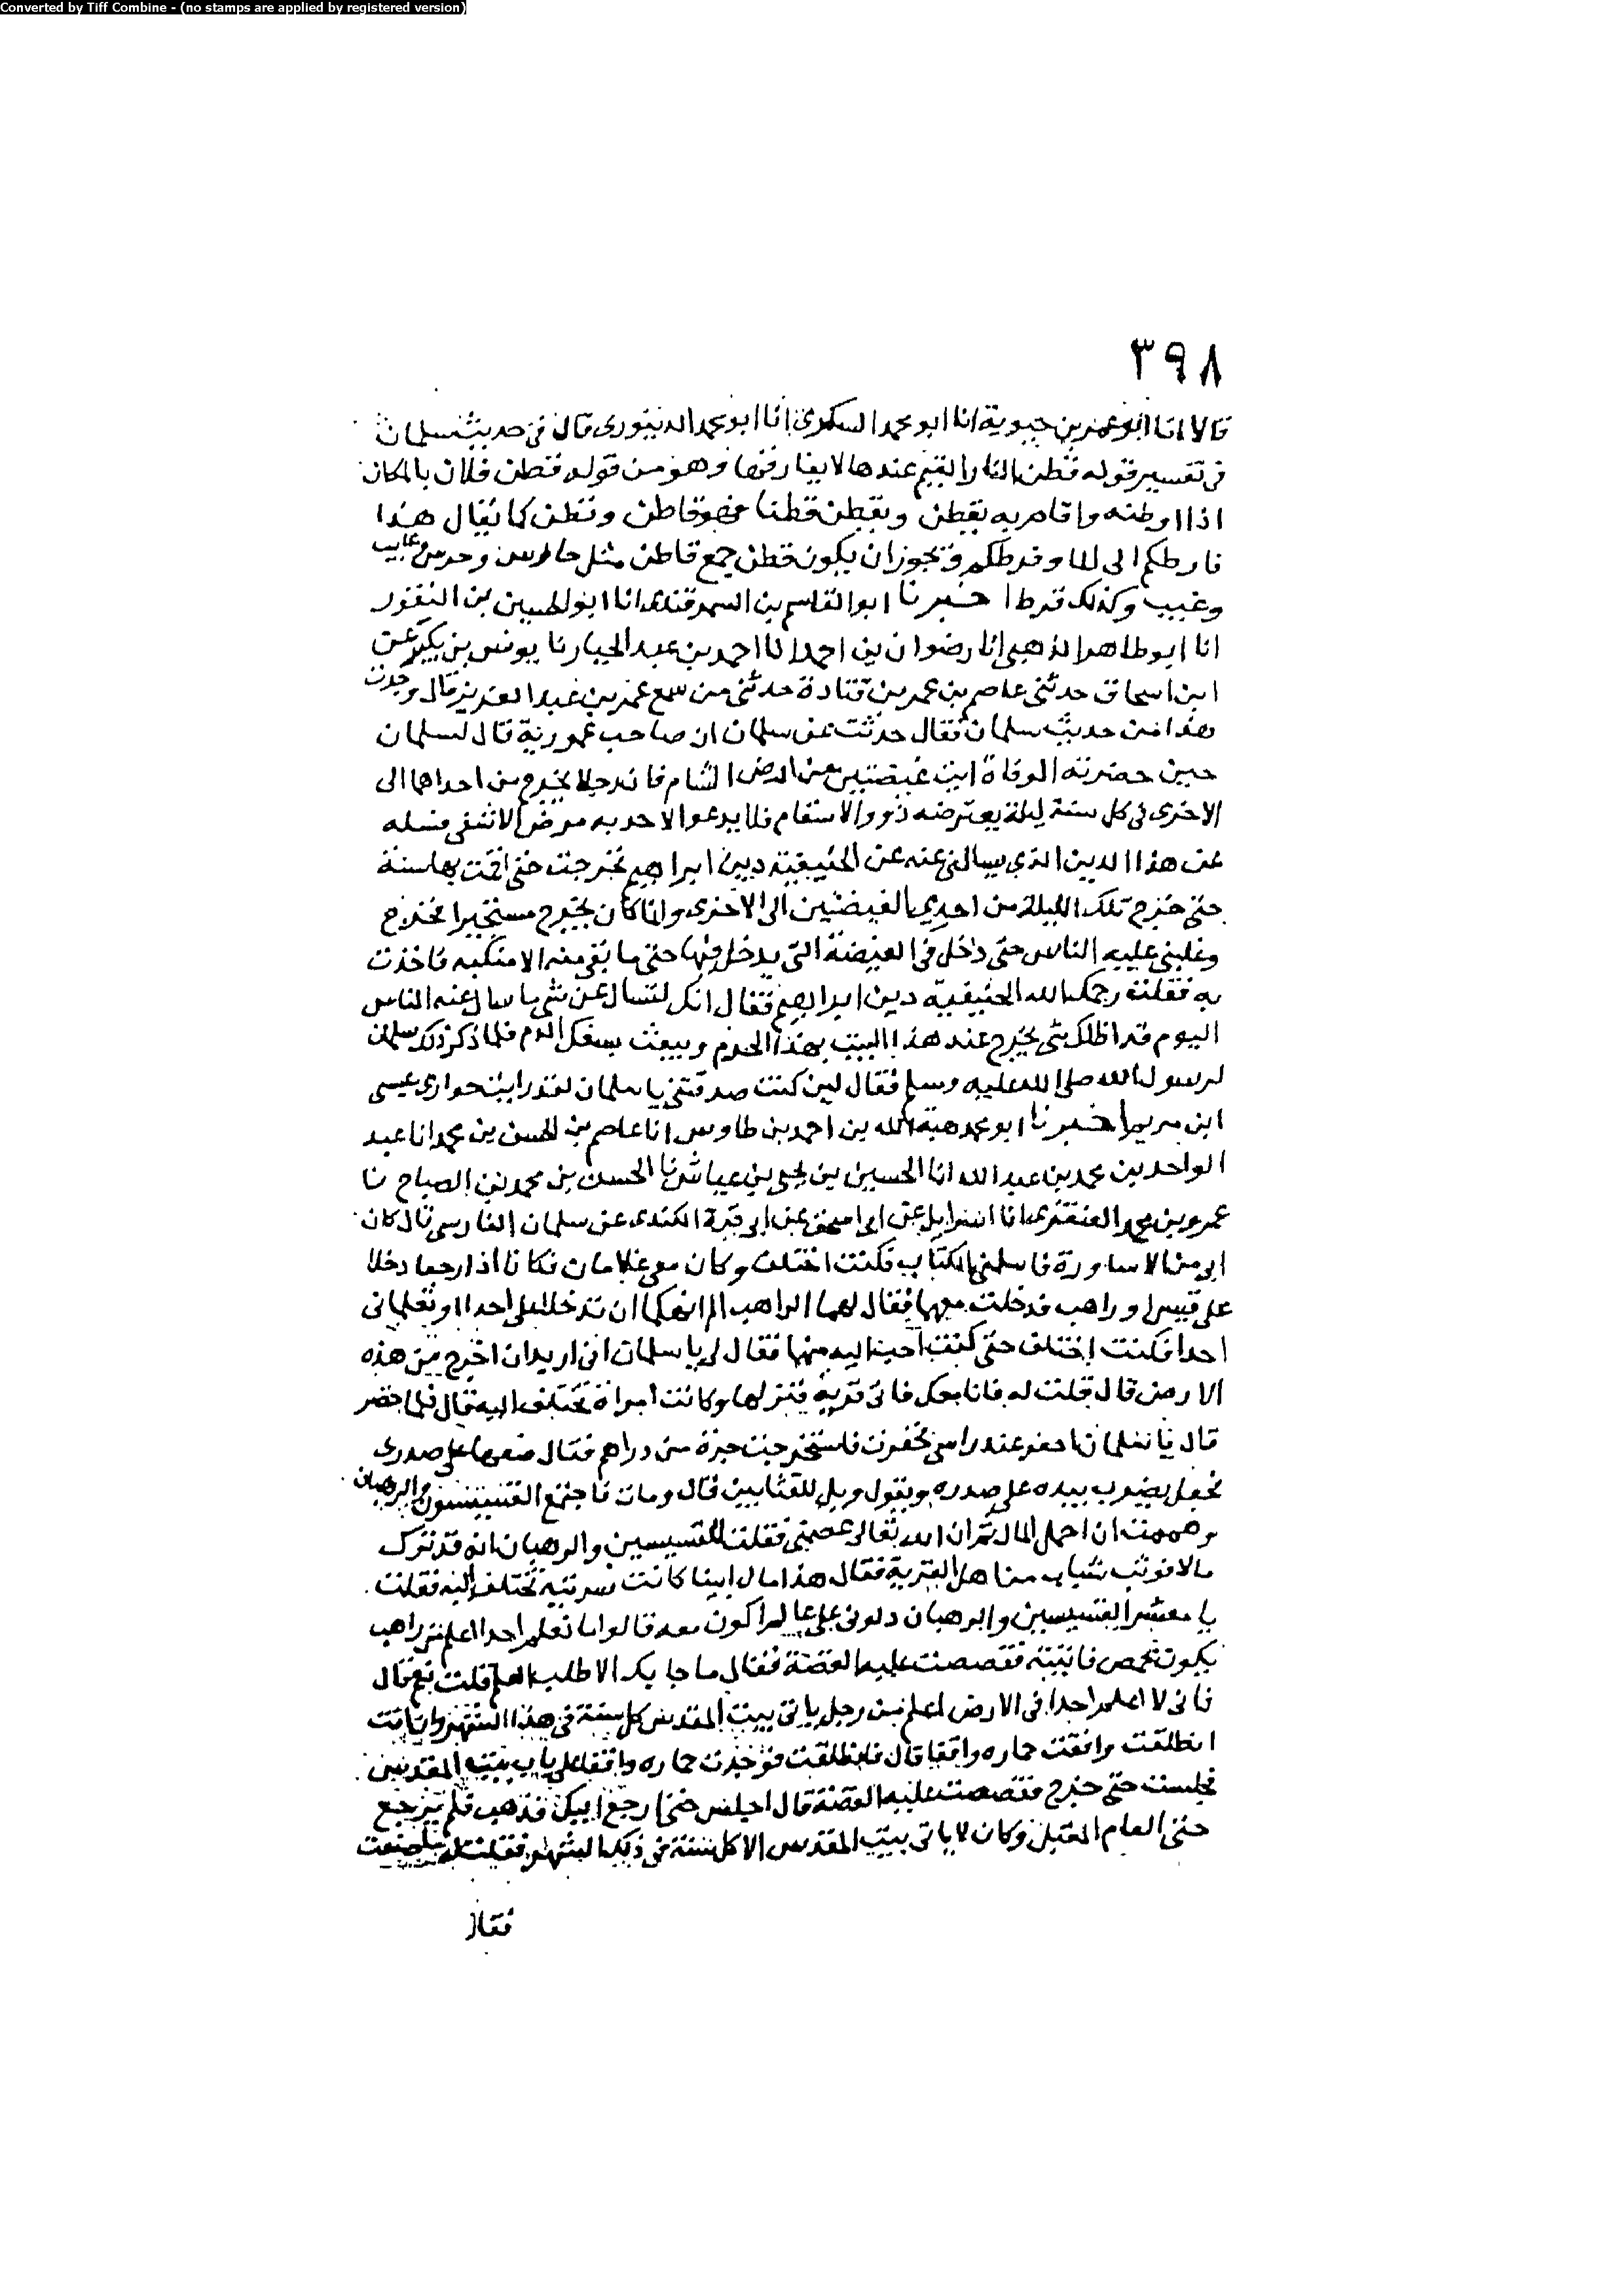 Converted by Tiff Combine - (no stamps are applied by registered version)
٣٩٨
قالا انا ابو عمر بن حيوية انا ابو محمد السكرى انا ابو محمد الدينورى قال فى حديث سلمان
فى تفسير قوله قطن النار المقيم عندها لا يفارقها وهو من قوله قطن فلان بالمكان
اذا اوطنه واقام به يقطن ويقطن قطنا فهو قاطن وقطن كما يقال هذا
فارطكم الى الما وفرطكم ويجوز ان يكون قطن جمع قاطن مثل حارس وحرس وغايب
وغيب وكذلك فرط اخبرنا ابو القاسم بن السمرقندى انا ابو الحسين بن النقور
انا ابو طاهر الذهبى انا رضوان بن احمد انا احمد بن عبد الجبار نا يونس بن بكير عن
ابن اسحاق حدثنى عاصم بن عمر بن قتادة حدثنى من سمع عمر بن عبد العزيز قال وجدت
هذا من حديث سلمان فقال حدثت عن سلمان ان صاحب عمورية قال لسلمان
حين حضرته الوفاة ايت غيضتين من ارض الشام فان رجلا يخرج من احداهما الى
الاخرى فى كل سنة ليلة يعترضه ذوو الاسقام فلا يدعوا لاحد به مرض الا شفى فسله
عن هذا الدين الذى يسالنى عنه عن الحنيفية دين ابراهيم فخرجت حتى اقمت بها سنة
حتى خرج تلك الليلة من احدى الغيضتين الى الاخرى وانما كان يخرج مستجيزا فخرج
وغلبنى عليه الناس حتى دخل فى الغيضة التى يدخل فيها حتى ما بقى منه الا منكبه فاخذت
به فقلت رحمك الله الحنيفية دين ابراهيم فقال انك لتسال عن شى ما سال عنه الناس
اليوم قد اظلك نبى يخرج عند هذا البيت بهذا الحرم ويبعث بسفك الدم فلما ذكر ذلك سلمان
لرسول الله صلى الله عليه وسلم فقال لين كنت صدقتنى يا سلمان لقد رايت حوارى عيسى
ابن مريم اخبرنا ابو محمد هبة الله بن احمد بن طاوس انا عاصم بن الحسن بن محمد انا عبد
الواحد بن محمد بن عبد الله انا الحسين بن يحيى بن عياش نا الحسن بن محمد بن الصباح نا
عمرو بن محمد العنقزى انا اسرايل عن ابى اسحق عن ابى قرة الكندى عن سلمان الفارسى قال كان
ابى من الاساورة فاسلمنى الكتاب فكنت اختلف وكان معى غلامان فكانا اذا رجعا دخلا
على قس او راهب فدخلت معهما فقال لهما الراهب الم انهكما ان تدخلا على احدا او تعلما بى
احدا فكنت اختلف حتى كنت احب اليه منهما فقال لى يا سلمان انى اريد ان اخرج من هذه
الارض قال قلت له فانا معك فاتى قرية فنزلها وكانت امراة تختلف اليه قال فلما حضر
قال يا سلمان احفر عند راسى فحفرت فاستخرجت جرة من دراهم فقال ضعها على صدرى
فجعل يضرب بيده على صدره ويقول ويل للقنايين قال ومات فاجتمع القسيسون والرهبان
وهممت ان احمل المال ثم ان الله تعالى عصمنى فقلت للقسيسين والرهبان انه قد ترك
مالا فوثب شباب من اهل القرية فقال هذا مال ابينا كانت سريته تختلف اليه فقلت
يا معشر القسيسين والرهبان دلونى على عالم اكون معه قالوا ما نعلم احدا اعلم من راهب
يكون بحمص فاتيته فقصصت عليه القصة فقال ما جا بك الا طلب العلم قلت نعم قال
فانى لا اعلم احدا فى الارض اعلم من رجل ياتى بيت المقدس كل سنة فى هذا الشهر وان انت
انطلقت وافقت حماره واقفا قال فانطلقت فوجدت حماره واقفا على باب بيت المقدس
فجلست حتى خرج فقصصت عليه القصة قال اجلس حتى ارجع اليك فذهب فلم يرجع
حتى العام المقبل وكان لا ياتى بيت المقدس الا كل سنة فى ذلك الشهر فقلت له ما صنعت
فقال